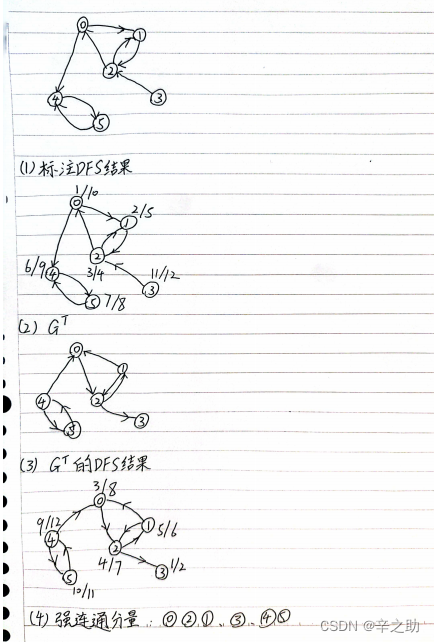 0
1
2
3
4
5
(1) 标注DFS结果
1/10
0
2/5
1
6/9 4
2
3/4
11/12
3
5 7/8
(2) Gᵀ
0
1
4
2
3
5
(3) Gᵀ的DFS结果
3/8
0
9/12
4
1 5/6
2
4/7
3 1/2
5
10/11
(4) 强连通分量: ⓪②①、③、④⑤
CSDN @辛之助